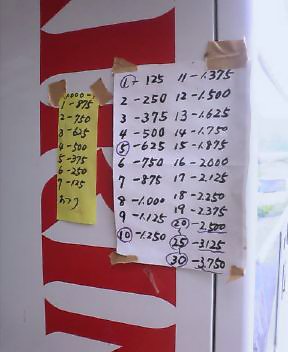 1.000-
1-875
2-750
3-625
4-500
5-375
6-250
7-125
1-125
2-250
3-375
4-500
5-625
6-750
7-875
8-1.000
9-1.125
10-1.250
11-1.375
12-1.500
13-1.625
14-1.750
15-1.875
16-2.000
17-2.125
18-2.250
19-2.375
20-2.500
25-3.125
30-3.750